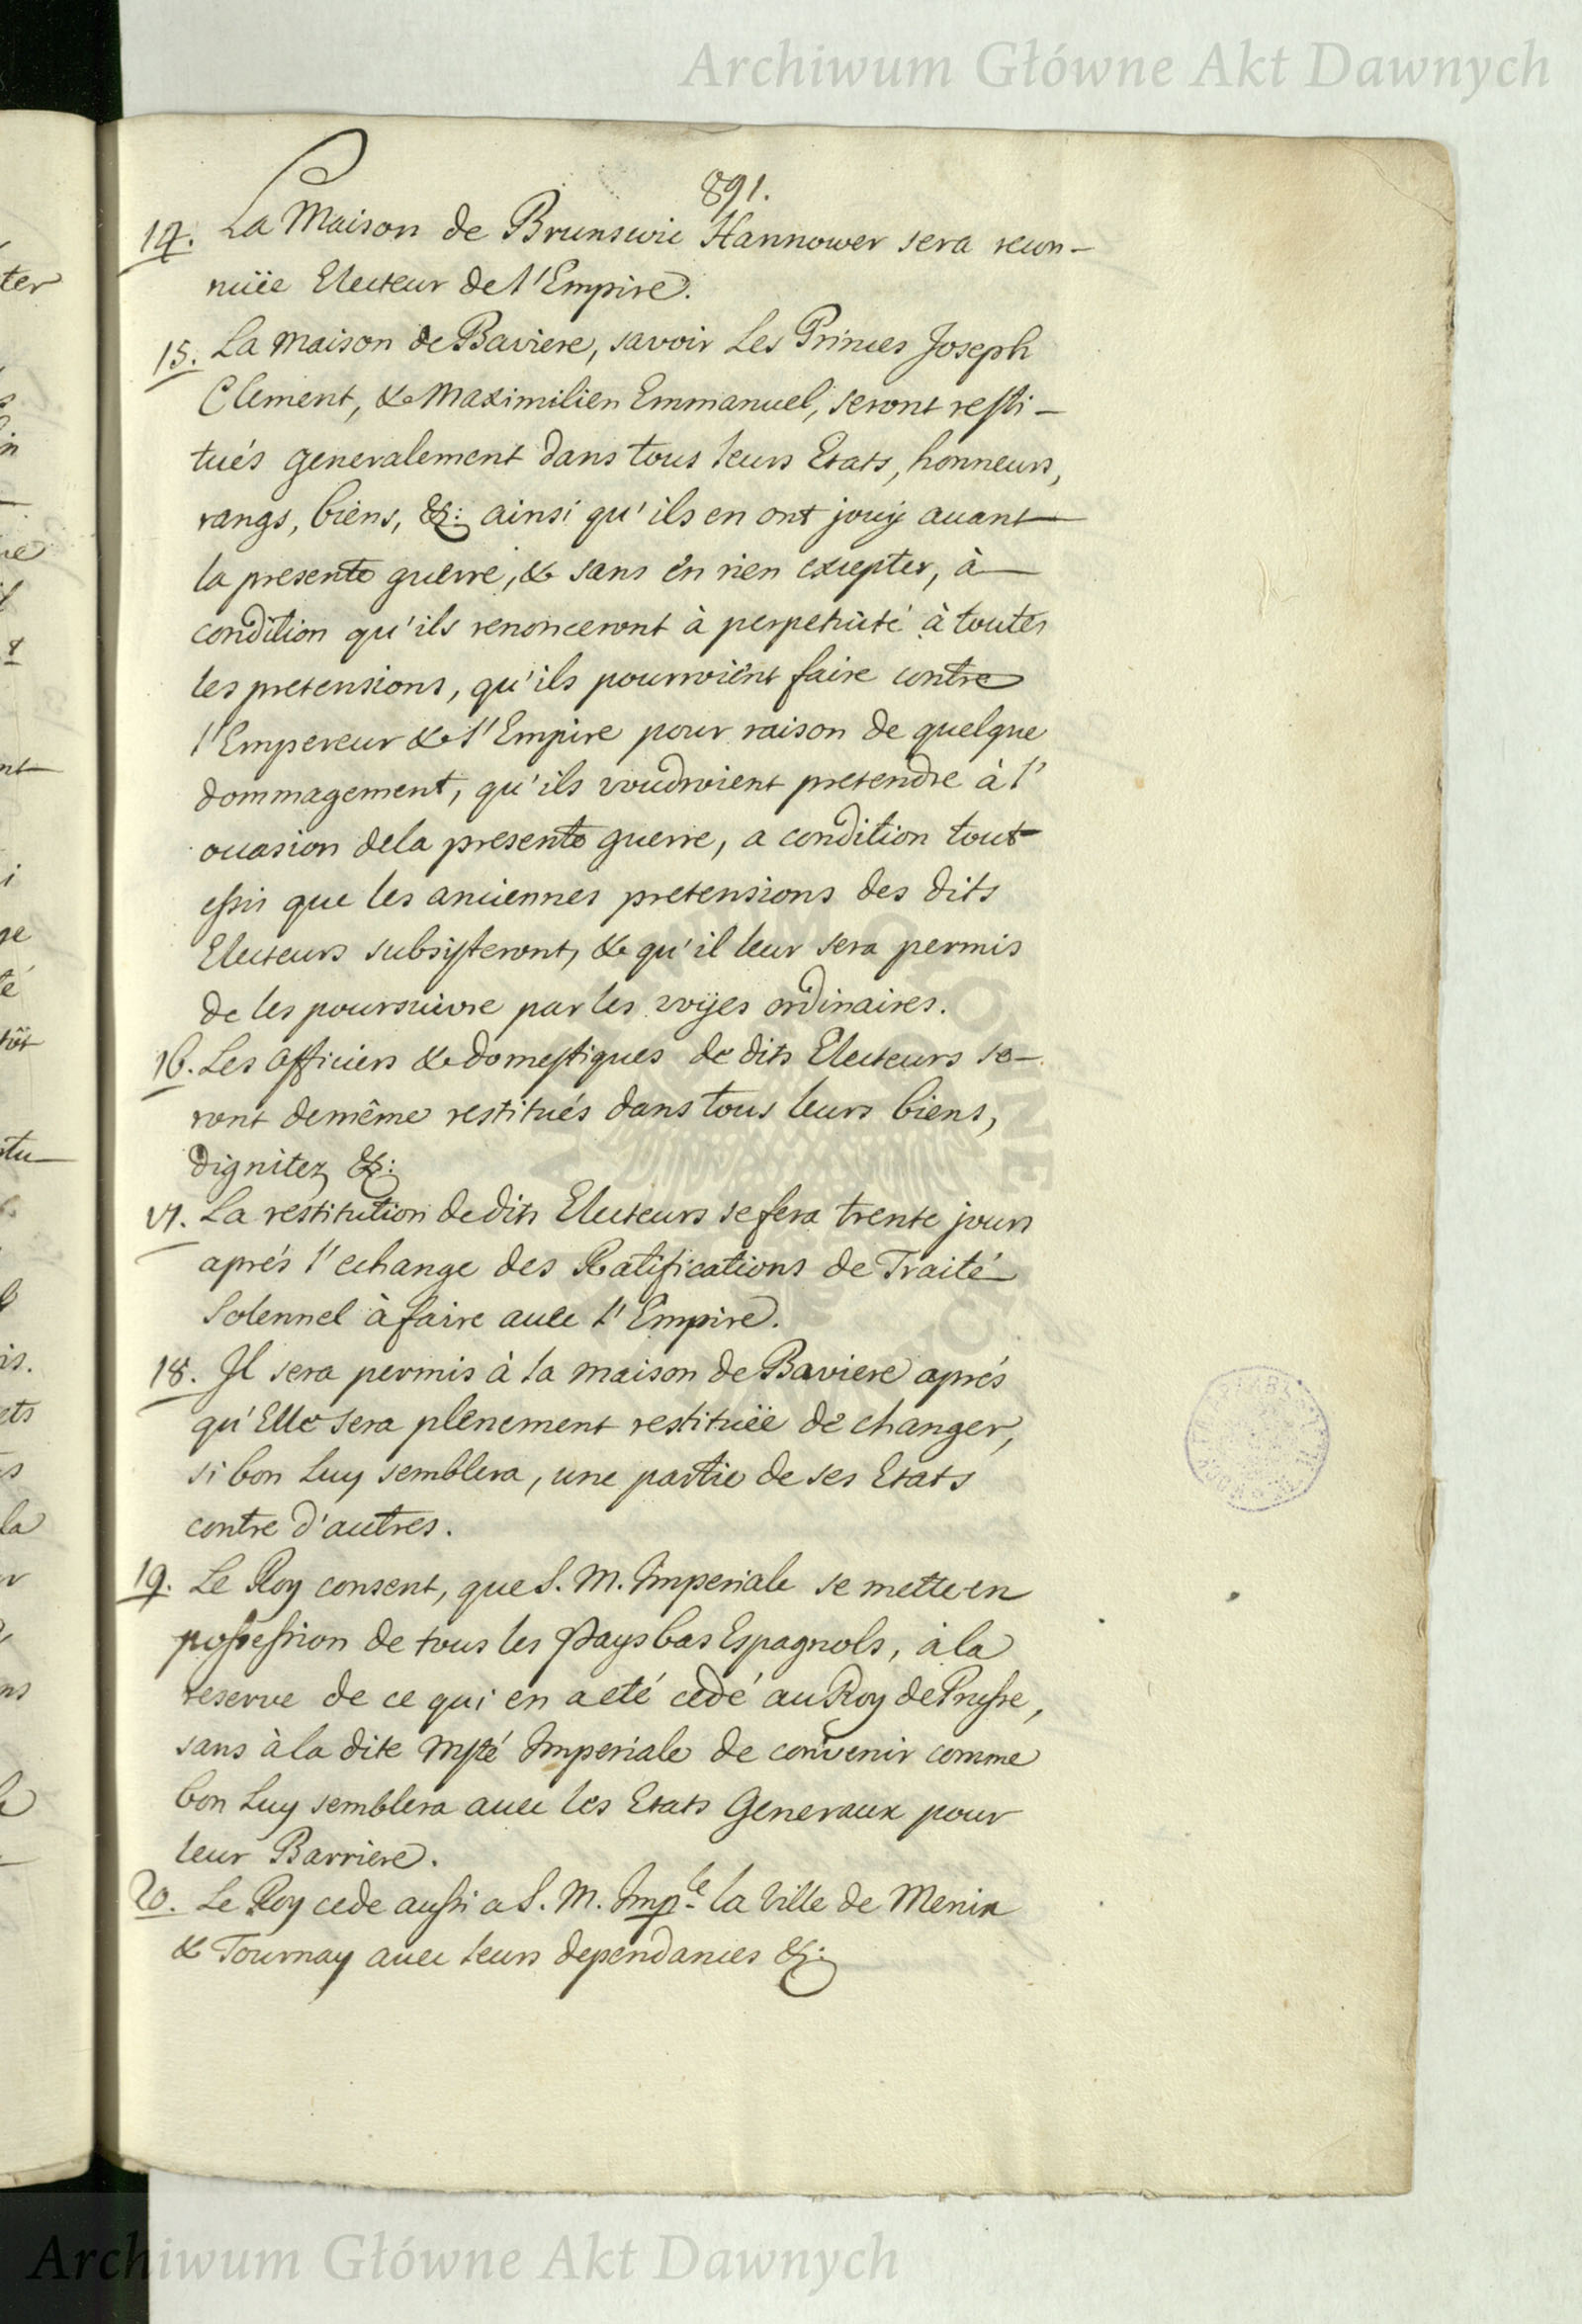 Archiwum Główne Akt Dawnych
891.
14. La Maison de Brunswic Hannower sera recon-
nüe Electeur de l'Empire.
15. La maison de Baviere, savoir Les Princes Joseph
Clement, & Maximilien Emmanuel, seront resti-
tués generalement dans tous leurs Etats, honneurs,
rangs, biens, &c: ainsi qu'ils en ont jouÿ auant
la presente guerre, & sans en rien excepter, à
condition qu'ils renonceront à perpetuité à toutes
les pretensions, qu'ils pourroient faire contre
l'Empereur & l'Empire pour raison de quelque
dommagement, qu'ils voudroient pretendre à l'
occasion dela presente guerre, a condition tout-
que les anciennes pretensions des dits
Electeurs subsisteront, & qu'il leur sera permis
de les poursuivre par les voÿes ordinaires.
16. Les officiers & domestiques de dits Electeurs se-
ront demême restitués dans tous leurs biens,
dignitez &c:
17. La restitution de dits Electeurs se fera trente jours
aprés l'echange des Ratifications de Traité
Solennel à faire auec l'Empire.
18. Il sera permis à la maison de Baviere aprés
qu'Elle sera plenement restituëe de changer,
si bon Luy semblera, une partie de ses Etats
contre d'autres.
19. Le Roy consent, que S. M. Imperiale se mette en
possession de tous les Paysbas Espagnols, à la
reserve de ce qui en a eté cedé au Roy de Prusse,
sans à la dite Msté Imperiale de convenir comme
bon Luy semblera auec les Etats Generaux pour
leur Barriere.
20. Le Roy cede aussi a S. M. Imple la Ville de Menin
& Tournay auec leurs dependances &c:
Archiwum Główne Akt Dawnych